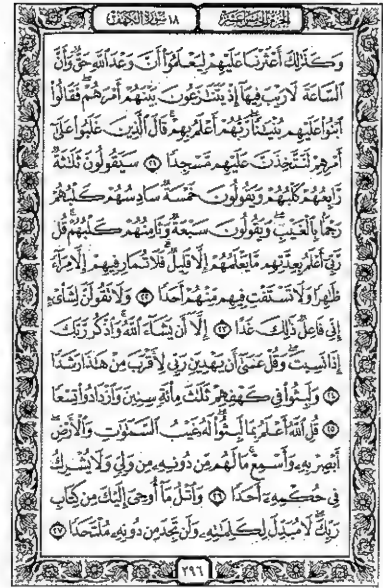 الجزء الخامس عشر
١٨ سورة الكهف
وَكَذَٰلِكَ أَعْثَرْنَا عَلَيْهِمْ لِيَعْلَمُوٓا۟ أَنَّ وَعْدَ ٱللَّهِ حَقٌّ وَأَنَّ
ٱلسَّاعَةَ لَا رَيْبَ فِيهَآ إِذْ يَتَنَٰزَعُونَ بَيْنَهُمْ أَمْرَهُمْ ۖ فَقَالُوا۟
ٱبْنُوا۟ عَلَيْهِم بُنْيَٰنًا ۖ رَّبُّهُمْ أَعْلَمُ بِهِمْ ۚ قَالَ ٱلَّذِينَ غَلَبُوا۟ عَلَىٰٓ
أَمْرِهِمْ لَنَتَّخِذَنَّ عَلَيْهِم مَّسْجِدًا ٢١ سَيَقُولُونَ ثَلَٰثَةٌ
رَّابِعُهُمْ كَلْبُهُمْ وَيَقُولُونَ خَمْسَةٌ سَادِسُهُمْ كَلْبُهُمْ
رَجْمًۢا بِٱلْغَيْبِ ۖ وَيَقُولُونَ سَبْعَةٌ وَثَامِنُهُمْ كَلْبُهُمْ ۚ قُل
رَّبِّىٓ أَعْلَمُ بِعِدَّتِهِم مَّا يَعْلَمُهُمْ إِلَّا قَلِيلٌ ۗ فَلَا تُمَارِ فِيهِمْ إِلَّا مِرَآءً
ظَٰهِرًا وَلَا تَسْتَفْتِ فِيهِم مِّنْهُمْ أَحَدًا ٢٢ وَلَا تَقُولَنَّ لِشَا۟ىْءٍ
إِنِّى فَاعِلٌ ذَٰلِكَ غَدًا ٢٣ إِلَّآ أَن يَشَآءَ ٱللَّهُ ۚ وَٱذْكُر رَّبَّكَ
إِذَا نَسِيتَ وَقُلْ عَسَىٰٓ أَن يَهْدِيَنِ رَبِّى لِأَقْرَبَ مِنْ هَٰذَا رَشَدًا
٢٤ وَلَبِثُوا۟ فِى كَهْفِهِمْ ثَلَٰثَ مِا۟ئَةٍ سِنِينَ وَٱزْدَادُوا۟ تِسْعًا
٢٥ قُلِ ٱللَّهُ أَعْلَمُ بِمَا لَبِثُوا۟ ۖ لَهُۥ غَيْبُ ٱلسَّمَٰوَٰتِ وَٱلْأَرْضِ ۖ
أَبْصِرْ بِهِۦ وَأَسْمِعْ ۚ مَا لَهُم مِّن دُونِهِۦ مِن وَلِىٍّ وَلَا يُشْرِكُ
فِى حُكْمِهِۦٓ أَحَدًا ٢٦ وَٱتْلُ مَآ أُوحِىَ إِلَيْكَ مِن كِتَابِ
رَبِّكَ ۖ لَا مُبَدِّلَ لِكَلِمَٰتِهِۦ وَلَن تَجِدَ مِن دُونِهِۦ مُلْتَحَدًا ٢٧
٢٩٦